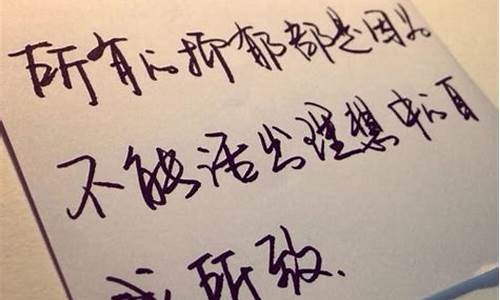 所有的抑郁都是因为
不能活出理想中的自
我所致.